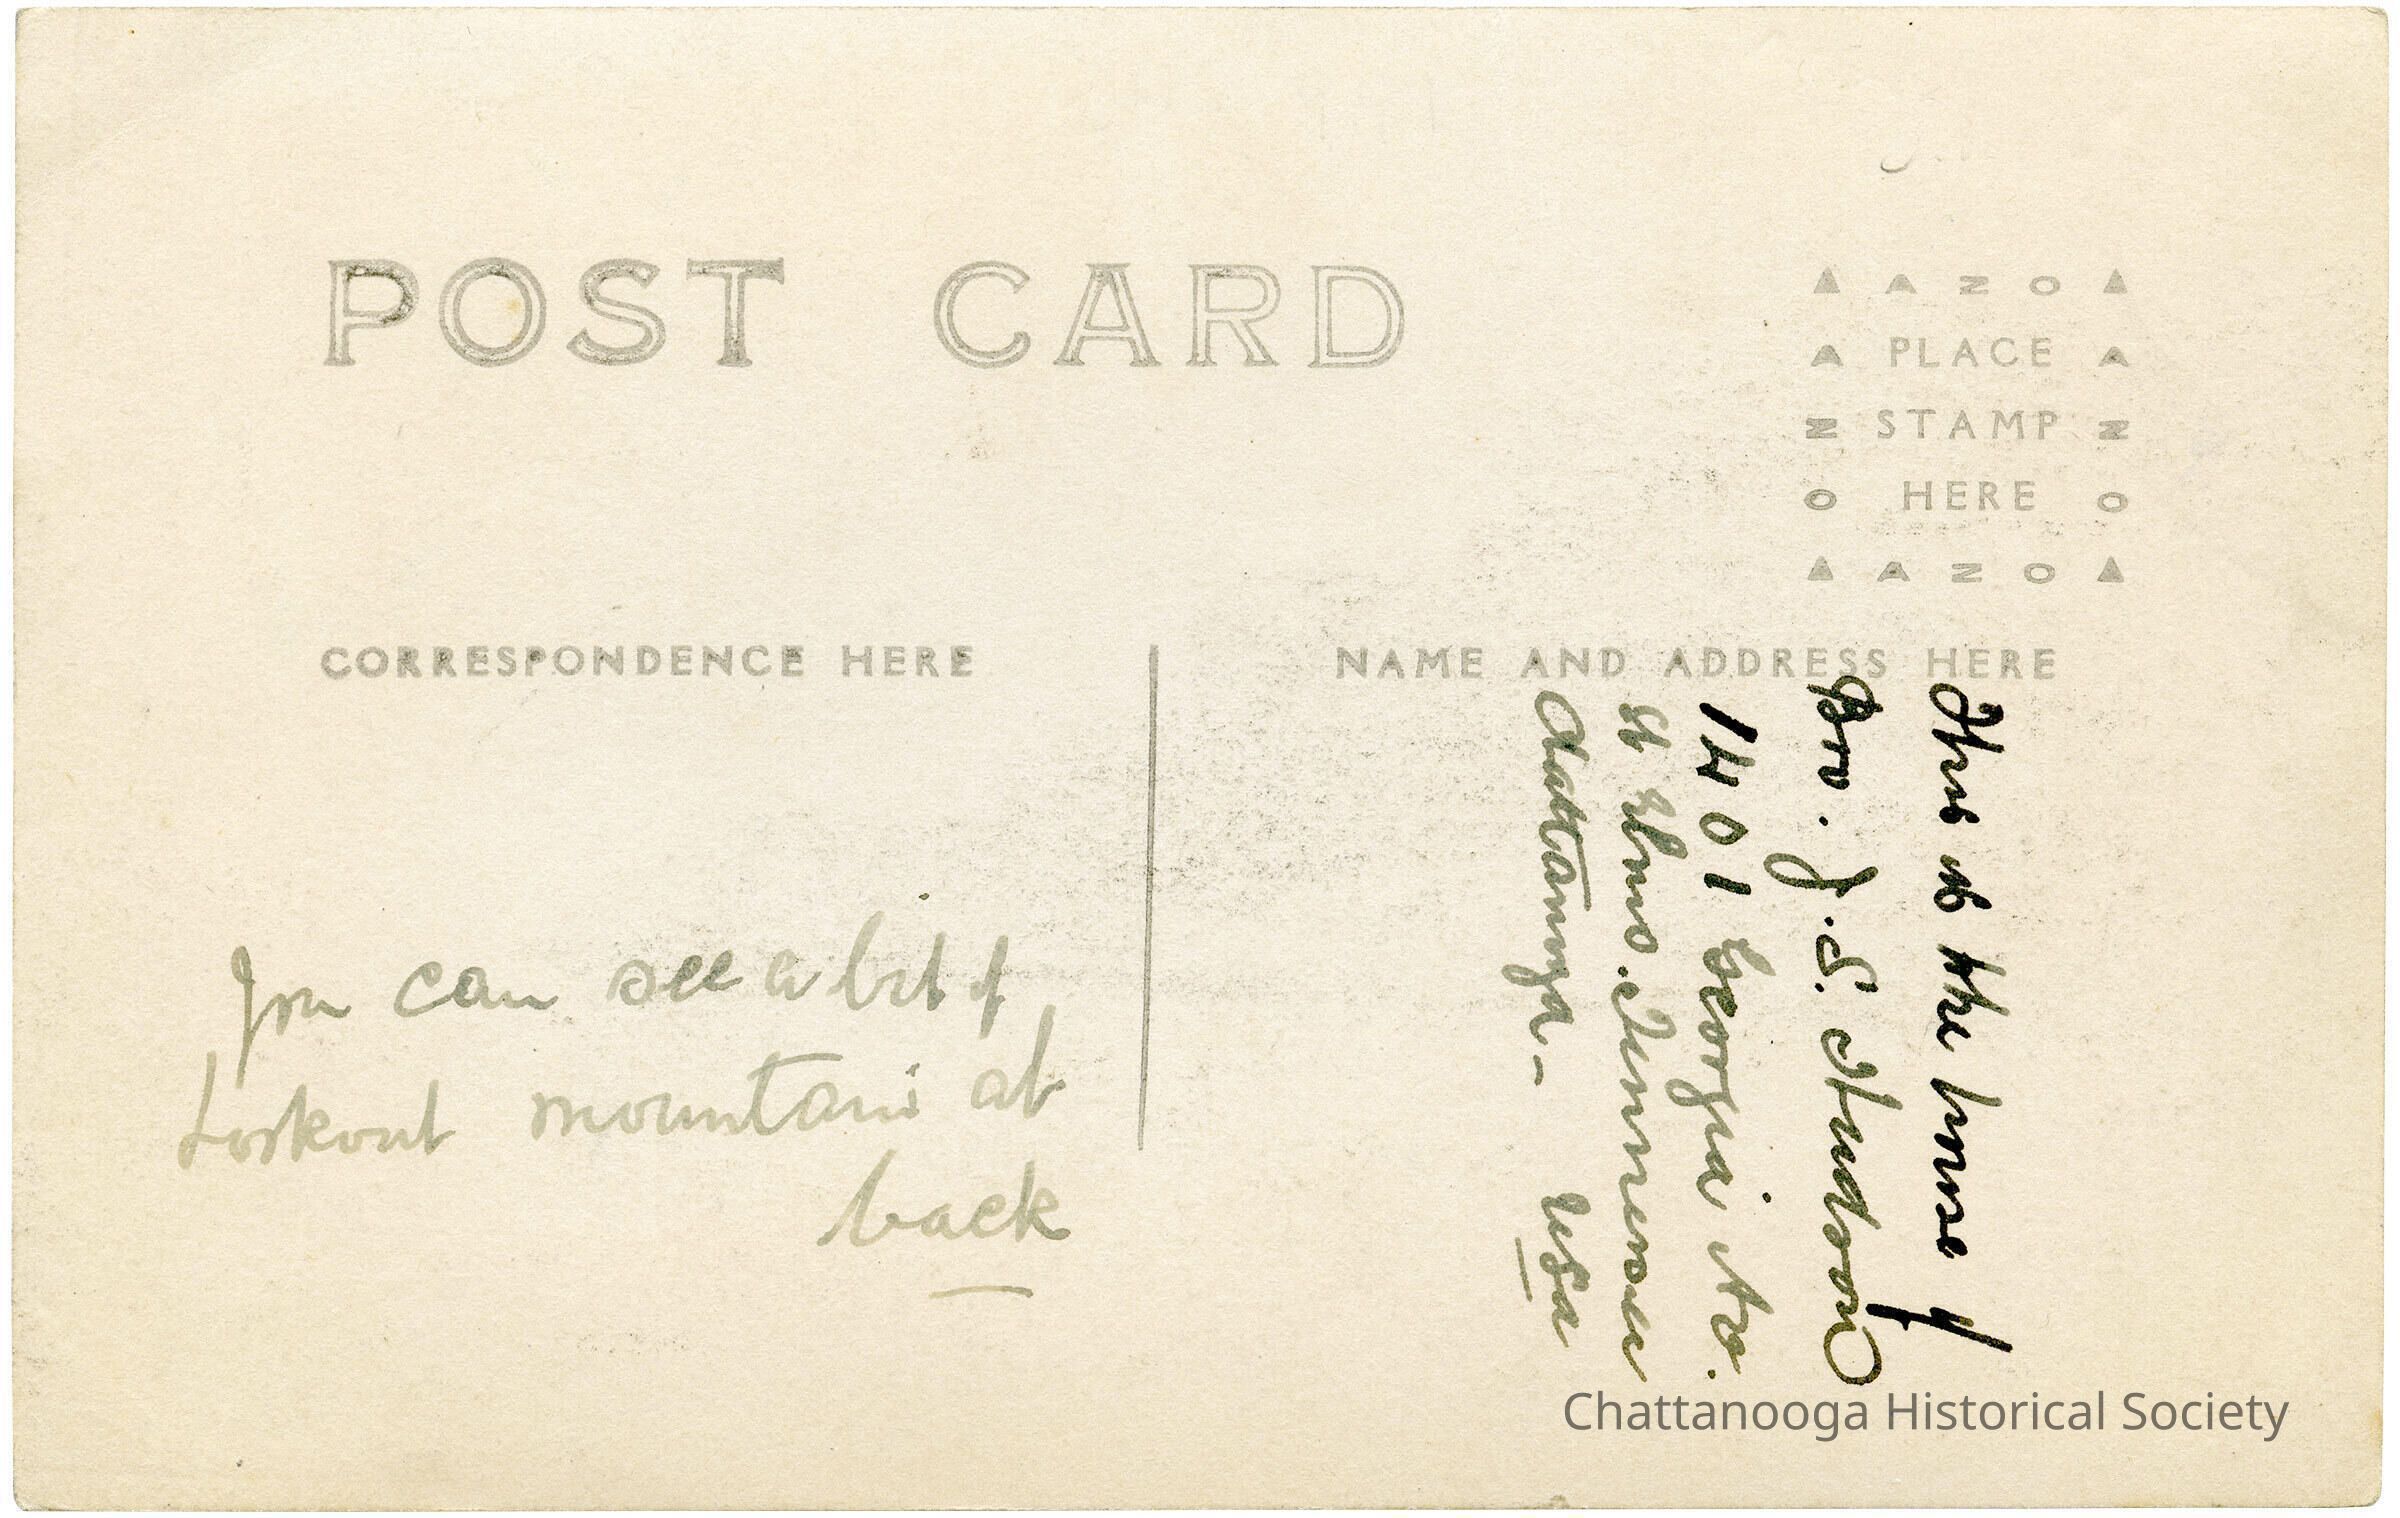 POST CARD
▲ A Z O ▲
A PLACE A
Z STAMP Z
O HERE O
▲ A Z O ▲
CORRESPONDENCE HERE
NAME AND ADDRESS HERE
you can see a bit of
Lookout mountain at
back
This is the house of
Bro. J. S. Hudson
1401 Georgia Av.
St Elmo. Tennessee
Chattanooga - USA
Chattanooga Historical Society